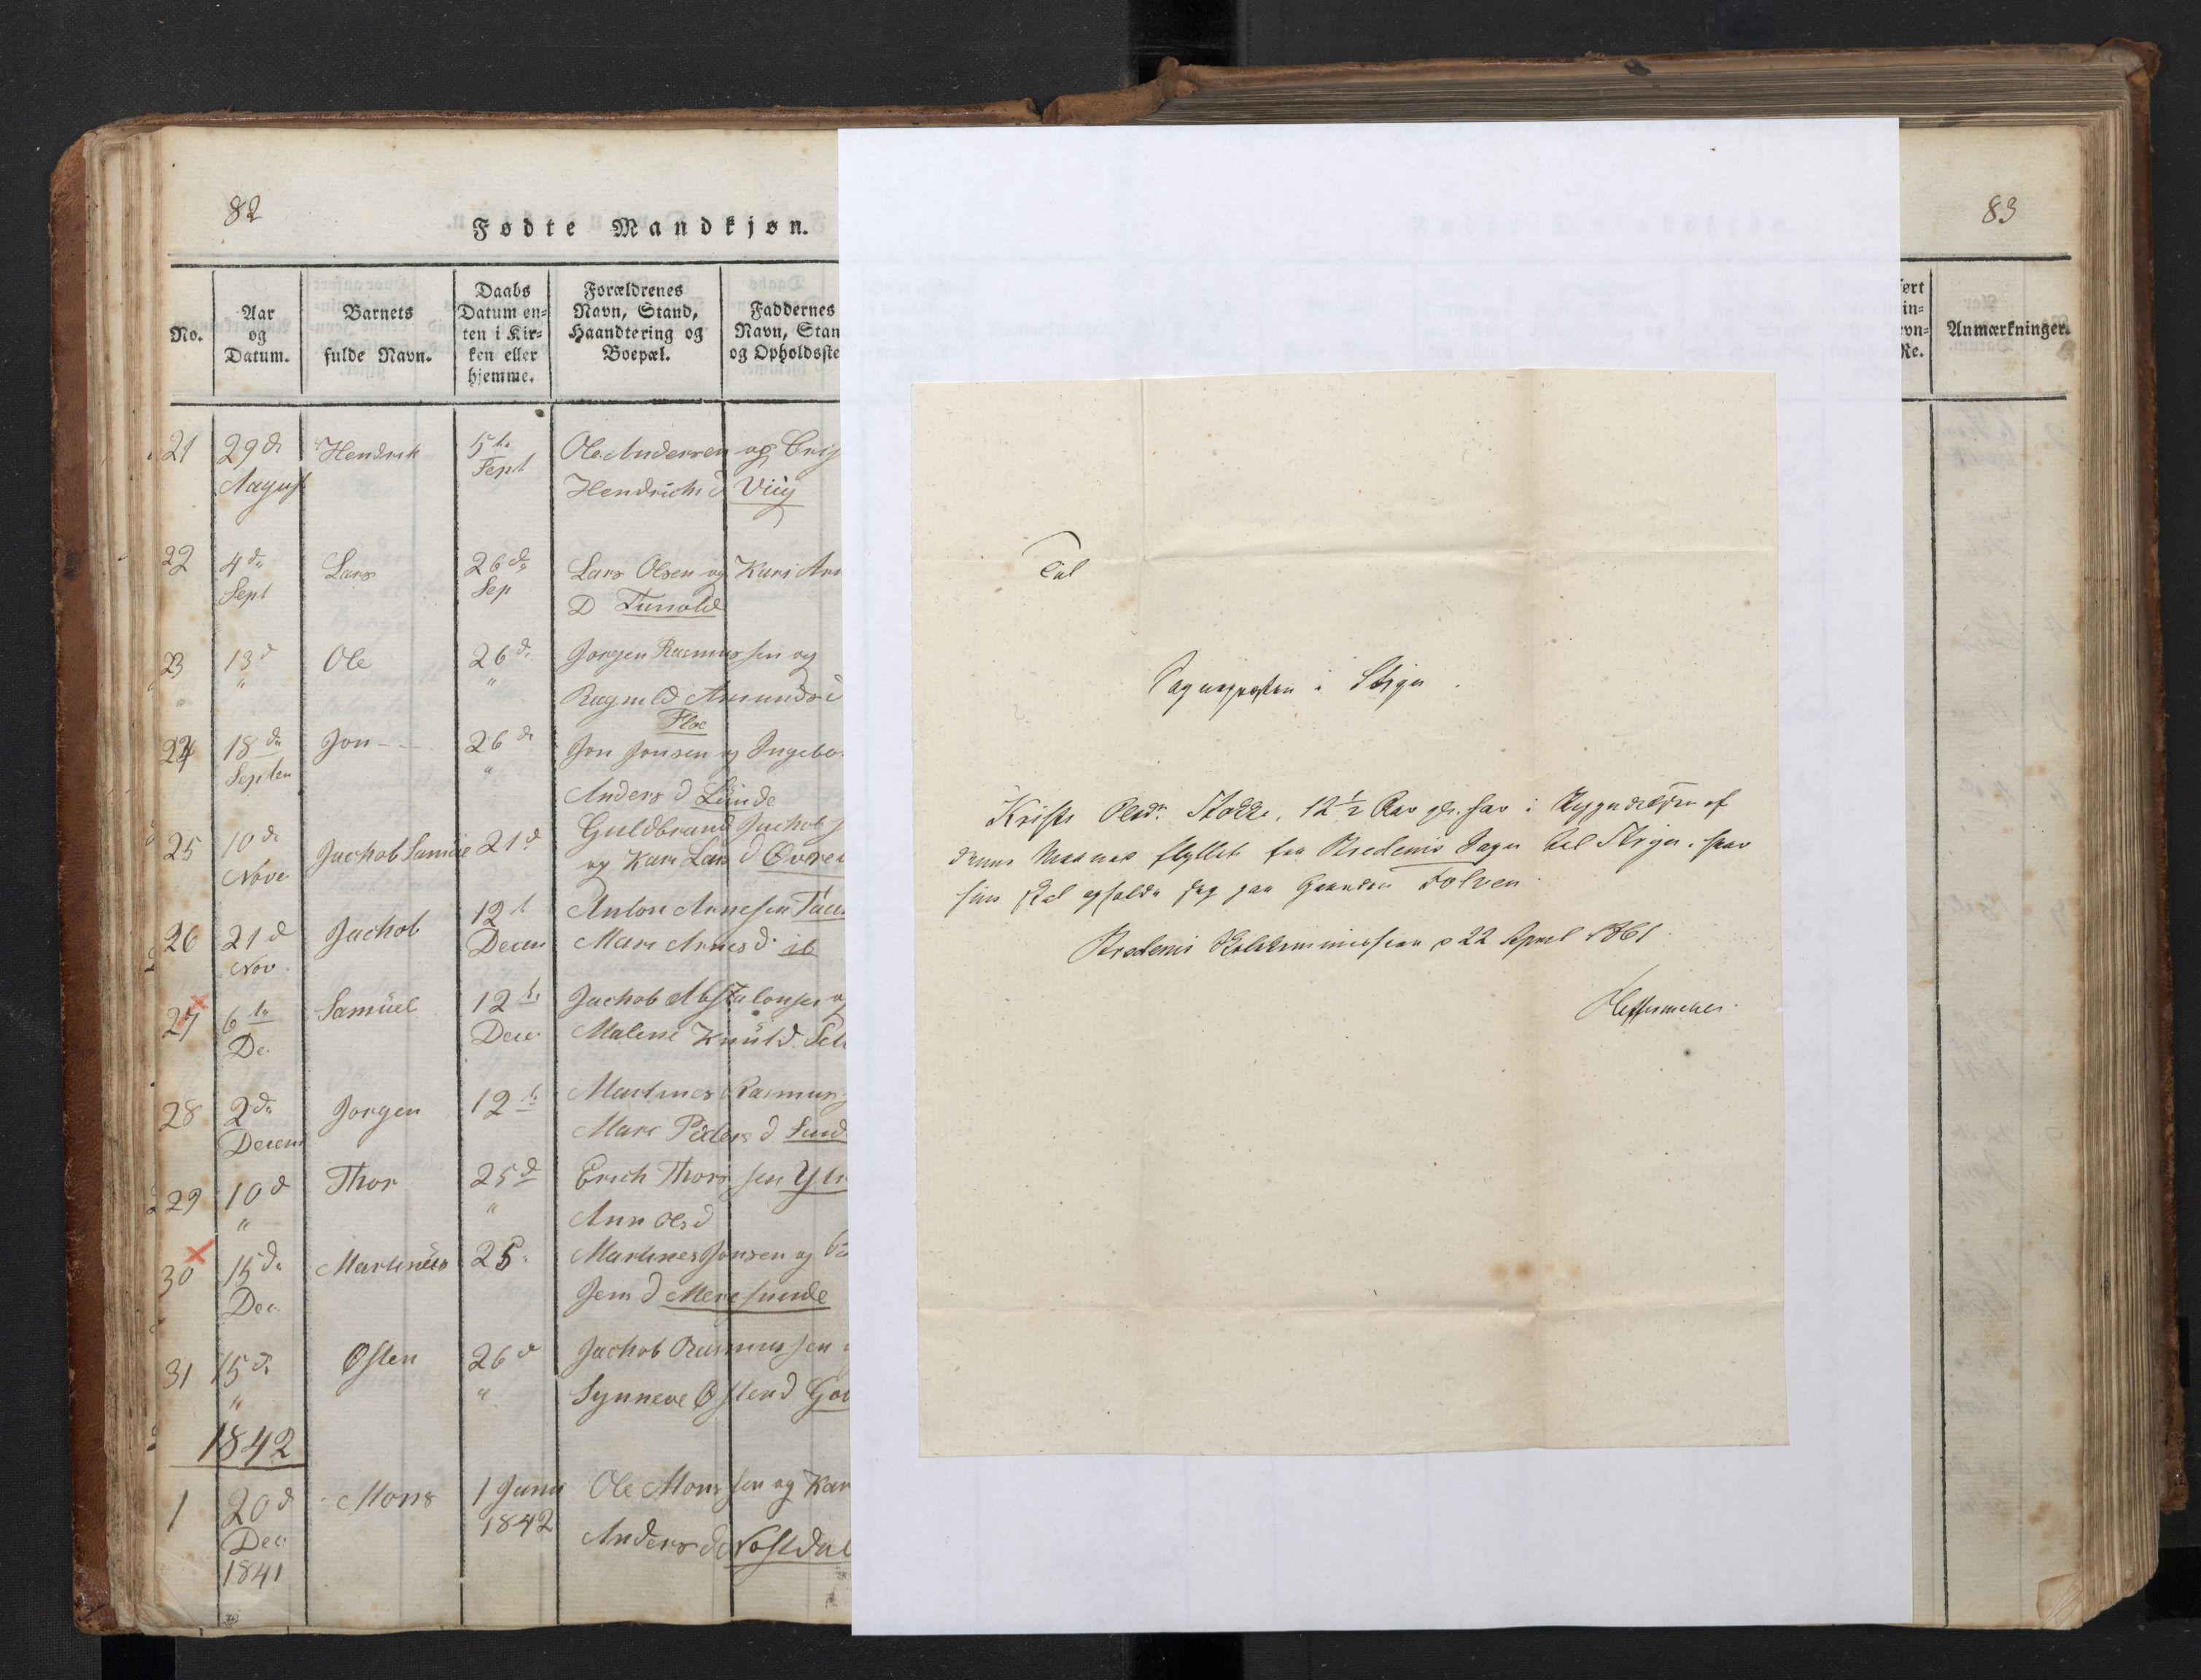 82
Fødte Mandkjøn.
No.
Aar
og
Datum.
Barnets
fulde Navn.
Daabs
Datum en=
ten i Kir=
ken eller
hjemme.
Forældrenes
Navn, Stand,
Haandtering og
Boepæl.
Faddernes
Navn, Stan
og Opholdsste
21 29d August Hendrik 5t Sept Ole Andersen og
Hendrichs d
22 4d Sept Lars 26d Sep Lars Olsen og Kari
D Tunold
23 13d " Ole 26d " Jorgen Rasmussen og
Ragnild Amunds d
Floe
24 18d Septem Jon 26d " Jon Jonsen og Ingebo
Anders d Lunde
25 10d Nove Jachob 21d Guldbrand Jachobs
og Kari Lars d
26 21d Nov Jachob 12t Decem Anton Annesen
Mari Arnes d ib
27 6t De Samüel 12t Dece Jachob Abstalonsen og
Malene Knüts d
28 2d Decem Jorgen 12t Martines Rasmus
Mari Peders d
29 10d " Thor 25d " Erich Thors sen
Ann Ols d
30 15d Dec Martinüs 25 Martines Jonsen og
Jens d
31 15d " Østen 26d " Jachob Rasmussen
Synneve Østend
1842
1 20d Dec 1841 Mons 1 Janu 1842 Ole Monssen og Kari
Anders d Nosdal
Til
Sognepresten i Stryn.
Kristi Olsdr. 12 1/2 Aar gl. har i af
denne Maaned flyttet fra Bredems Sogn til Stryn, hvor
hun skal opholde sig paa Gaarden Tolven
22 April 1861
83
ørt
in=
vn=
Re.
Anmærkninger.